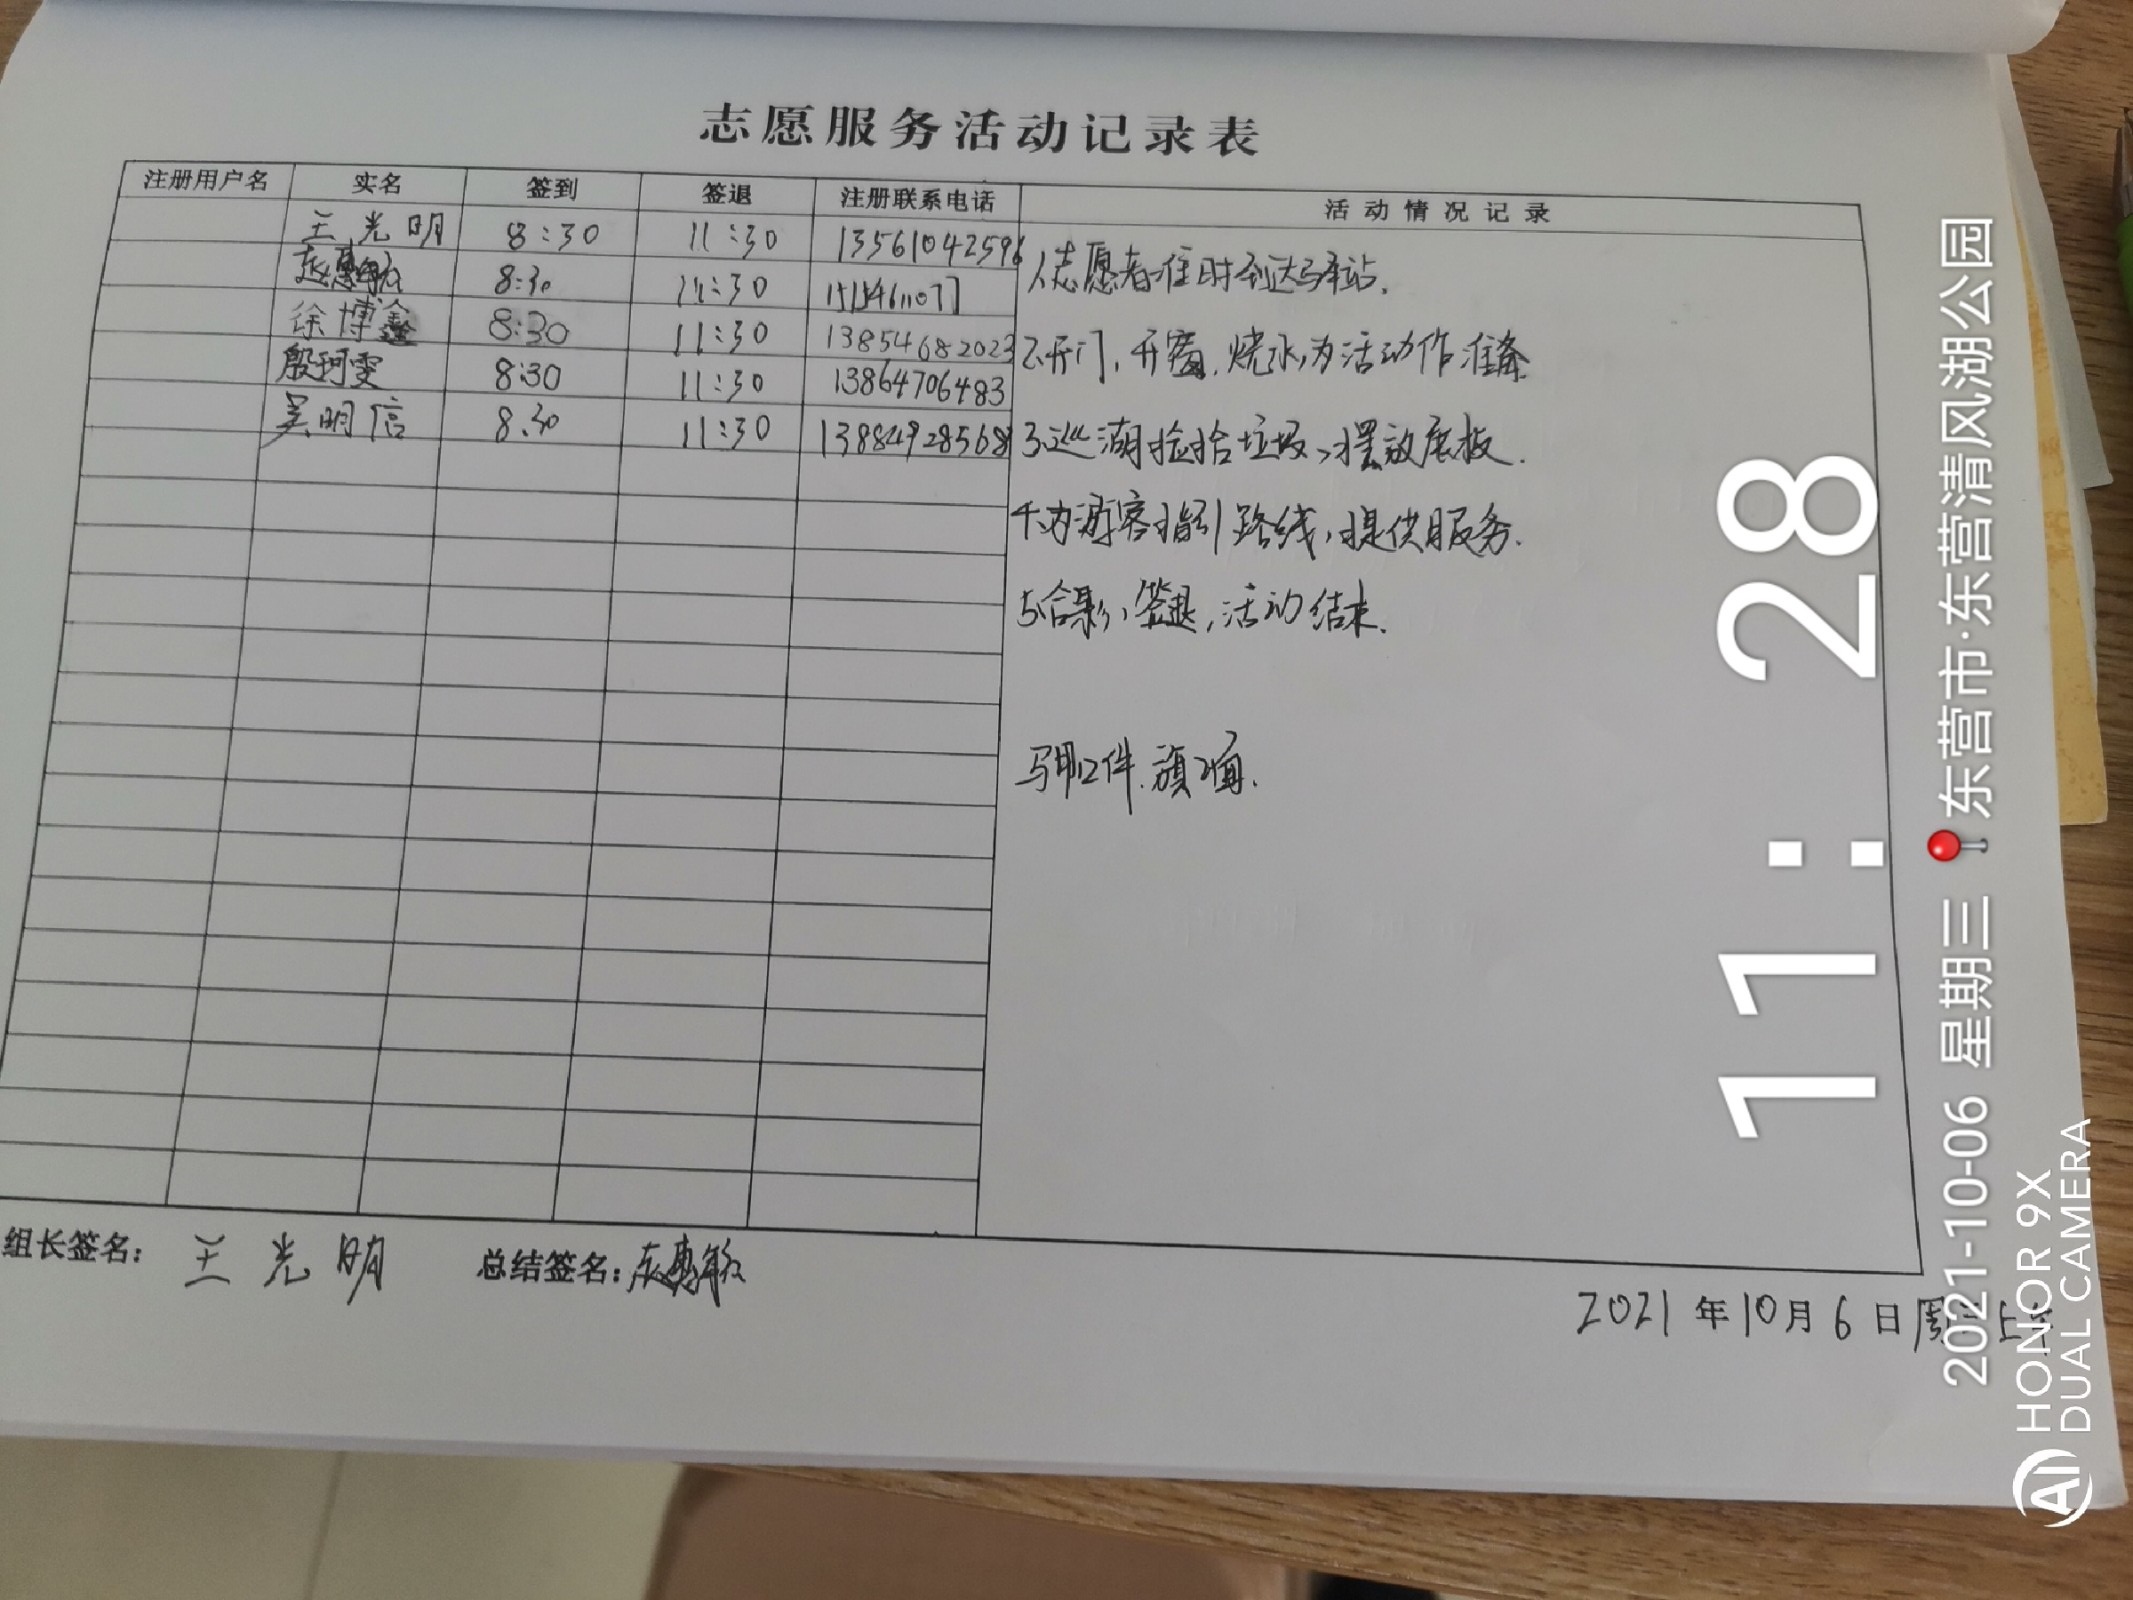 志愿服务活动记录表
注册用户名 实名 签到 签退 注册联系电话 活动情况记录
王光明 8:30 11:30 13561042596
8:30 11:30
徐博鑫 8:30 11:30 13854682023
殷珂雯 8:30 11:30 13864706483
吴明信 8:30 11:30 13884928568
1、志愿者准时到达驿站.
2、开门,开窗,烧水,为活动作准备
3、巡湖捡拾垃圾,摆放展板.
4、为游客指引路线,提供服务.
5、合影,签退,活动结束.
马甲12件.旗2面.
组长签名: 王光明 总结签名:
2021年10月6日周三上午
11:28
2021-10-06 星期三 东营市·东营清风湖公园
HONOR 9X
DUAL CAMERA
AI